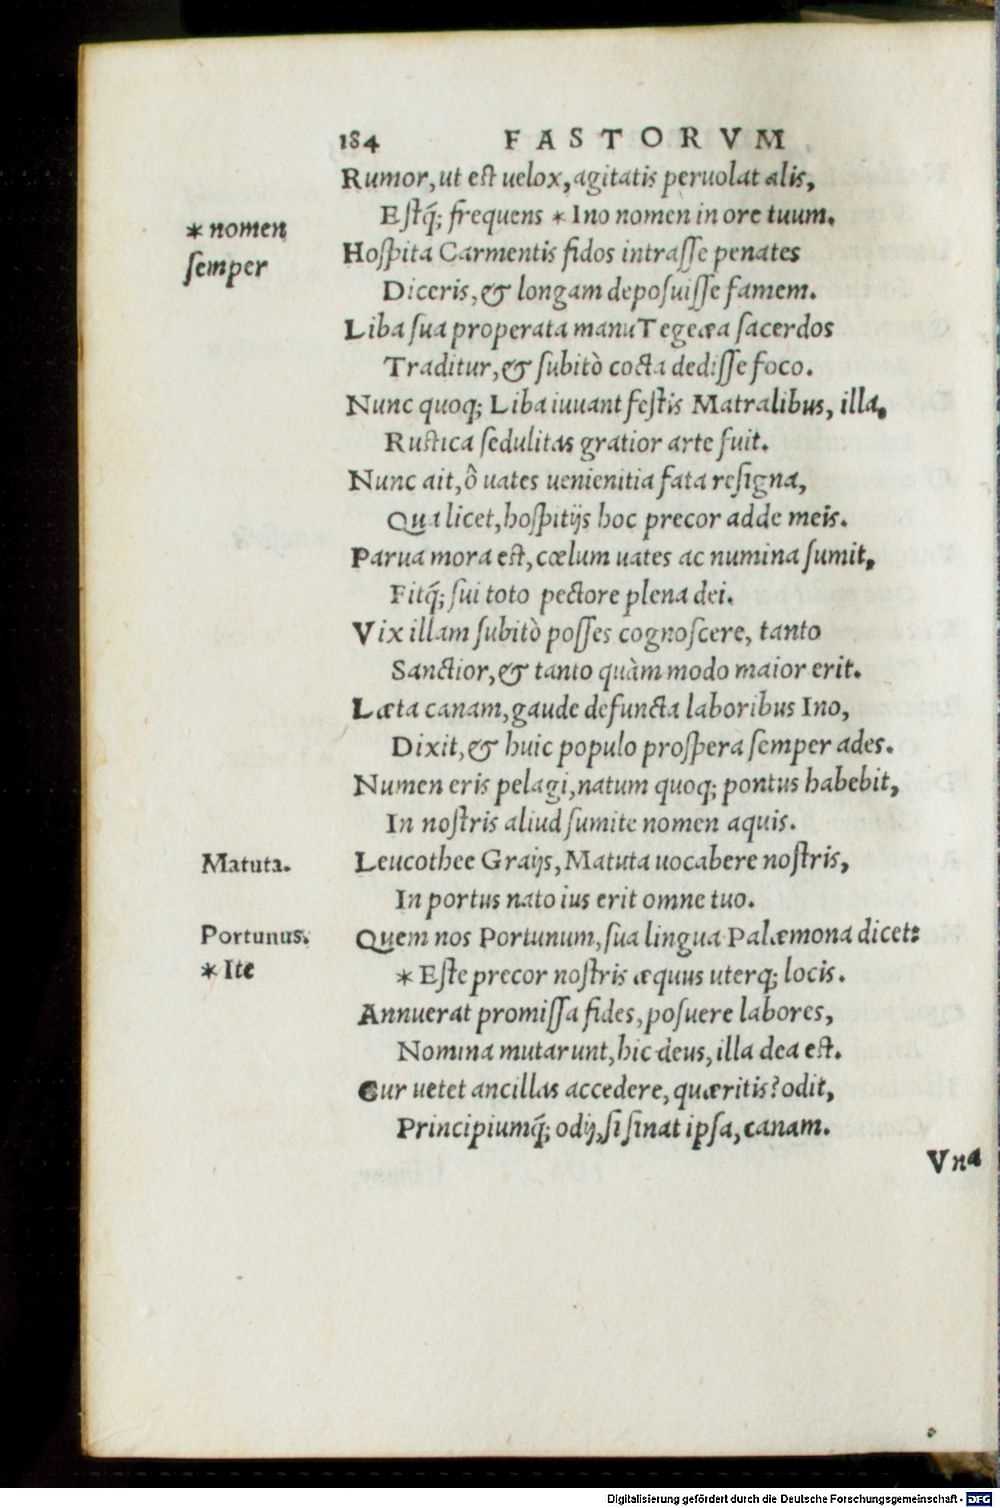 184 FASTORVM
Rumor, ut est uelox, agitatis peruolat alis,
Estq́; frequens * Ino nomen in ore tuum.
* nomen
semper
Hospita Carmentis fidos intrasse penates
Diceris, & longam deposuisse famem.
Liba sua properata manu Tegeæa sacerdos
Traditur, & subitò cocta dedisse foco.
Nunc quoq; Liba iuuant festis Matralibus, illa,
Rustica sedulitas gratior arte fuit.
Nunc ait, ô uates uenienitia fata resigna,
Qua licet, hospitijs hoc precor adde meis.
Parua mora est, cœlum uates ac numina sumit,
Fitq́; sui toto pectore plena dei.
Vix illam subitò posses cognoscere, tanto
Sanctior, & tanto quàm modo maior erit.
Læta canam, gaude defuncta laboribus Ino,
Dixit, & huic populo prospera semper ades.
Numen eris pelagi, natum quoq; pontus habebit,
In nostris aliud sumite nomen aquis.
Matuta.
Leucothee Graijs, Matuta uocabere nostris,
In portus nato ius erit omne tuo.
Portunus.
Quem nos Portunum, sua lingua Palæmona dicet:
* Ite
* Este precor nostris æquus uterq; locis.
Annuerat promissa fides, posuere labores,
Nomina mutarunt, hic deus, illa dea est.
Cur uetet ancillas accedere, quæritis? odit,
Principiumq́; odij, si sinat ipsa, canam.
Vna
Digitalisierung gefördert durch die Deutsche Forschungsgemeinschaft - DFG